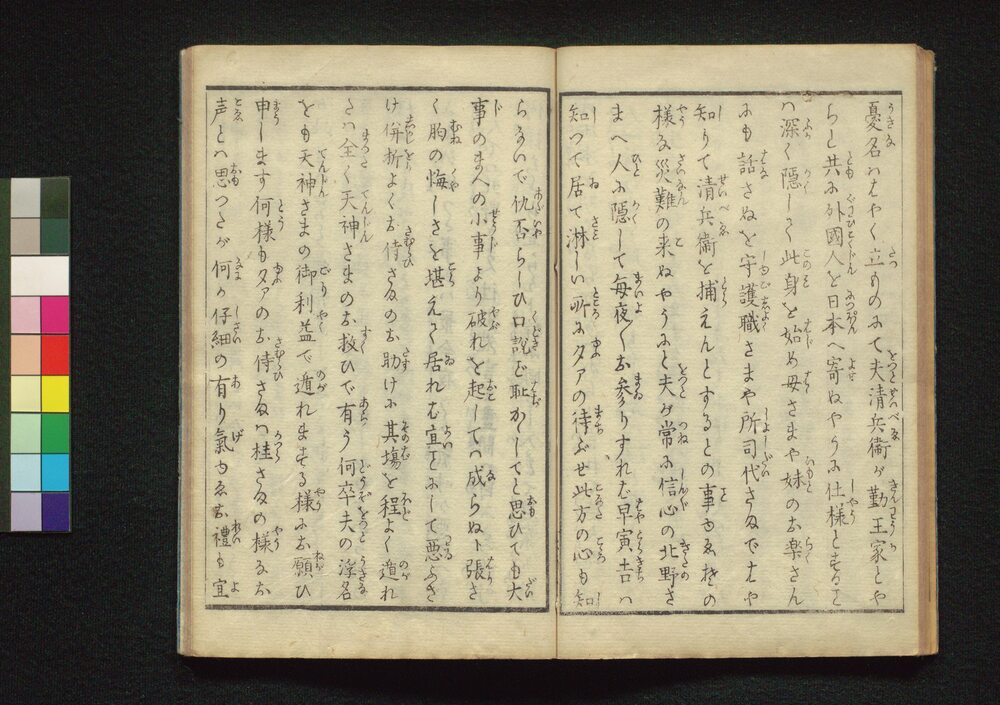 憂名はやく立ものにて夫清兵衛が勤王家とや
らし共に外國人を日本へ寄ぬやうに仕様とするを
は深く隠して此身を始め母さまや妹のお楽さん
にも話さぬを守護職さまや所司代さまでははや
知りて清兵衛を捕えんとするとの事ゆゑ其の
様な災難の来ぬやうにと夫が常に信心の北野さ
まへ人に隠して毎夜くお参りすれば早寅吉は
知つて居て淋しい所に夕アの待ぶせ此方の心も知
らないで仇否らしひ口説ど恥かしひと思ひても大
事のまへの小事より破れを起しては成らぬト張さ
く胸の悔しさを堪えて居れば宜とにして悪ふざ
け併折よくお侍さまのお助けに其塲を程よく遁れ
たは全く天神さまのお救ひで有う何卒夫の浮名
をも天神さまの御利益で遁れまする様にお願ひ
申します何様も夕アのお侍さまは桂さまの様なお
声とは思つたが何か仔細の有り氣ゆゑお禮も宜